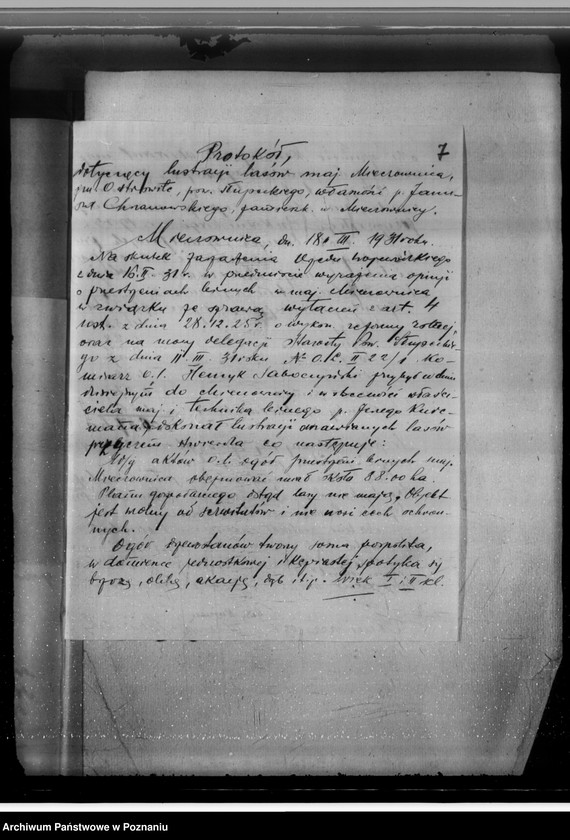 7
Protokół,
dotyczący lustracji lasów maj. Mierzownica,
gm. Ostrowite, pow. Słupeckiego, własność p. Janu-
sza Chrzanowskiego, zamieszk. w Mierzownicy.
Mierzownica, dn. 18. III. 1931 roku.
Na skutek zarządzenia Urzędu Wojewódzkiego
z dnia 16.II.31 r. w przedmiocie wyrażenia opinji
o przestrzeniach leśnych w maj. Mierzownica
w związku ze sprawą wyłączeń z art. 4
ust. z dnia 28.12.25 r. o wykon. reformy rolnej,
oraz na mocy delegacji Starosty Pow. Słupeckie-
go z dnia 11.III.31 roku № O.L. II 22/1 Ko-
misarz o.l. Henryk przybył w dniu
dzisiejszym do Mierzownicy i w obecności właści-
ciela maj. i technika leśnego p. Jerzego
dokonał lustracji lasów
przyczem stwierdza co następuje:
aktów o.l. ogół przestrzeni leśnych maj.
Mierzownica obejmować miał około 88.00 ha.
Planu gospodarczego dotąd lasy nie mają. Objekt
jest wolny od serwitutów i nie nosi cech ochron-
nych.
Ogół drzewostanów tworzy sosna pospolita,
w domieszce jednostkowej i kępiastej spotyka się
brzozę, olchę, akację, dąb itp. wiek I i II kl.